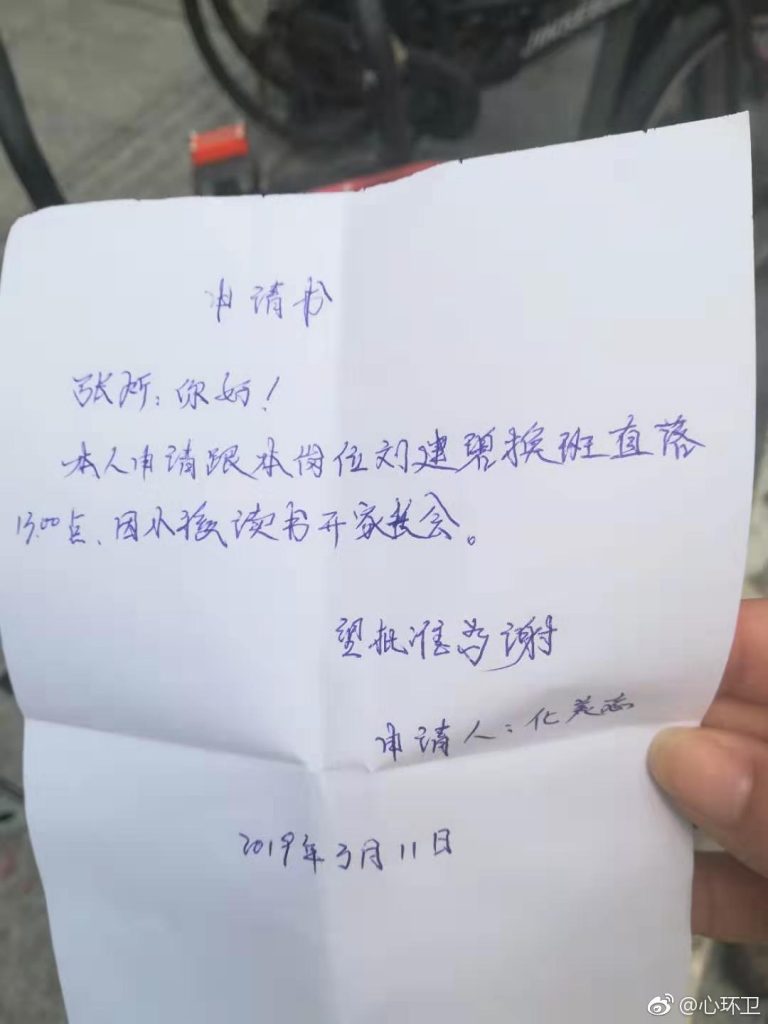 申请书
张所：你好！
本人申请跟本岗位刘建碧换班直落
13:00点、因小孩读书开家长会。
望批准为谢
申请人：化美
2019年3月11日
@心环卫